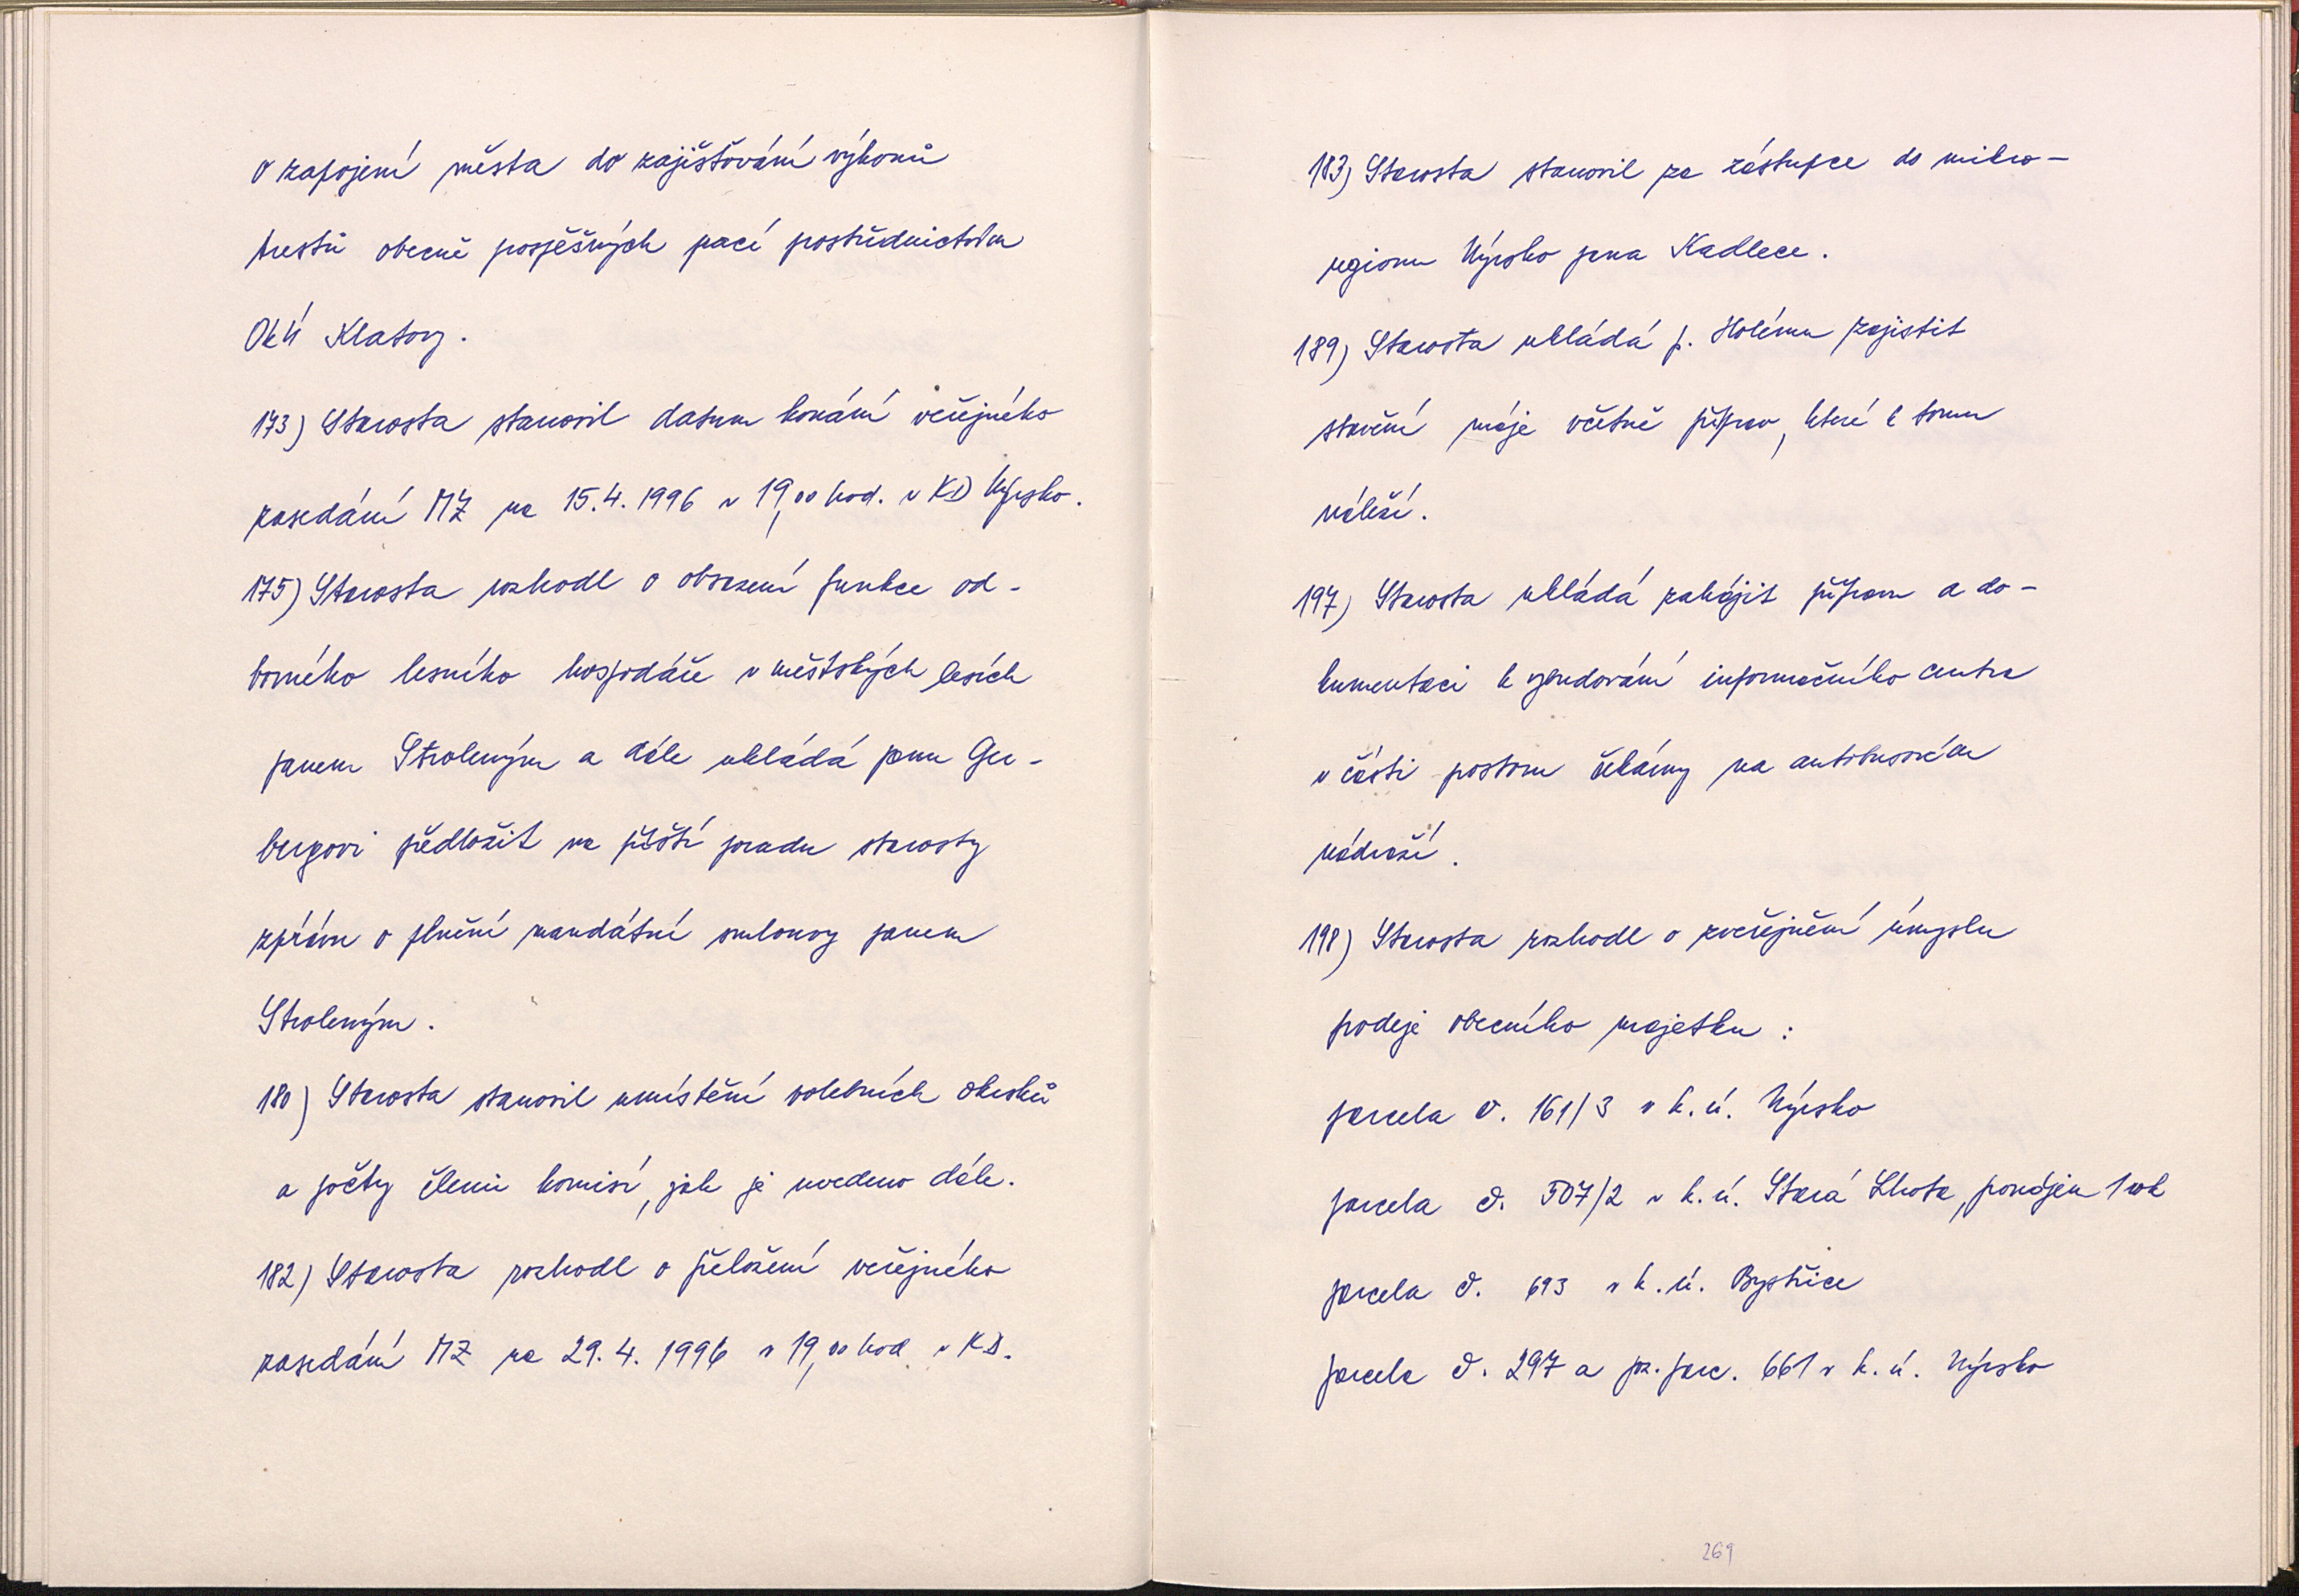 o zapojení města do zajišťování výkonů
trestů obecně prospěšných prací prostřednictvím
OkÚ Klatovy.
173) Starosta stanovil datum konání veřejného
zasedání MZ na 15.4.1996 v 19,00 hod. v KD Nýrsko.
175) Starosta rozhodl o obsazení funkce od-
borného lesního hospodáře v městských lesích
panem Stroleným a dále ukládá panu Ger-
bergovi předložit na příští poradu starosty
zprávu o plnění mandátní smlouvy panem
Stroleným.
180) Starosta stanovil umístění volebních okrsků
a počty členů komisí, jak je uvedeno dále.
182) Starosta rozhodl o přeložení veřejného
zasedání MZ na 29.4.1996 v 19,00 hod v KD.
183) Starosta stanovil za zástupce do mikro-
regionu Nýrsko pana Kadlece.
189) Starosta ukládá p. Holému zajistit
stavění máje včetně příprav, které k tomu
náleží.
197) Starosta ukládá zahájit přípravu a do-
kumentaci k vybudování informačního centra
v části prostoru čekárny na autobusovém
nádraží.
198) Starosta rozhodl o zveřejnění úmyslu
prodeje obecního majetku:
parcela č. 161/3 v k.ú. Nýrsko
parcela č. 507/2 v k.ú. Stará Lhota, pronájem 1 rok
parcela č. 693 v k.ú. Bystřice
parcela č. 297 a poz. parc. 661 v k.ú. Nýrsko
269